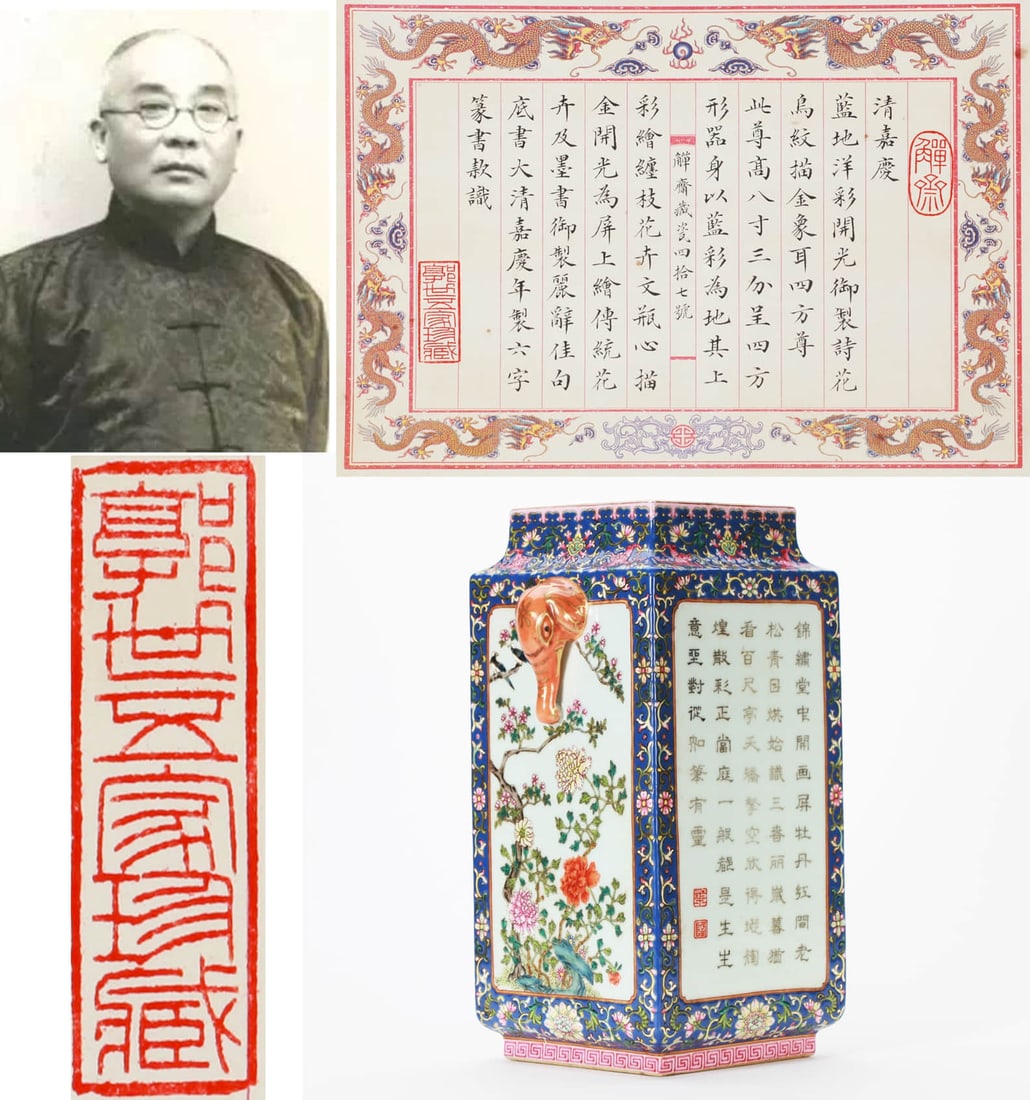 觶齋
清嘉慶
藍地洋彩開光御製詩花
鳥紋描金象耳四方尊
此尊高八寸三分呈四方
形器身以藍彩為地其上
觶齋藏瓷四拾七號
彩繪纏枝花卉文瓶心描
金開光為屏上繪傳統花
卉及墨書御製麗辭佳句
底書大清嘉慶年製六字
篆書款識
郭世五家珍藏
郭世五家珍藏
錦繡堂中開画屏牡丹紅間老
松青日烘始識三春丽歲暮猶
看百尺亭天矯擎空欣得地絢
煌散彩正當庭一般能是生生
意坐對從知筆有靈